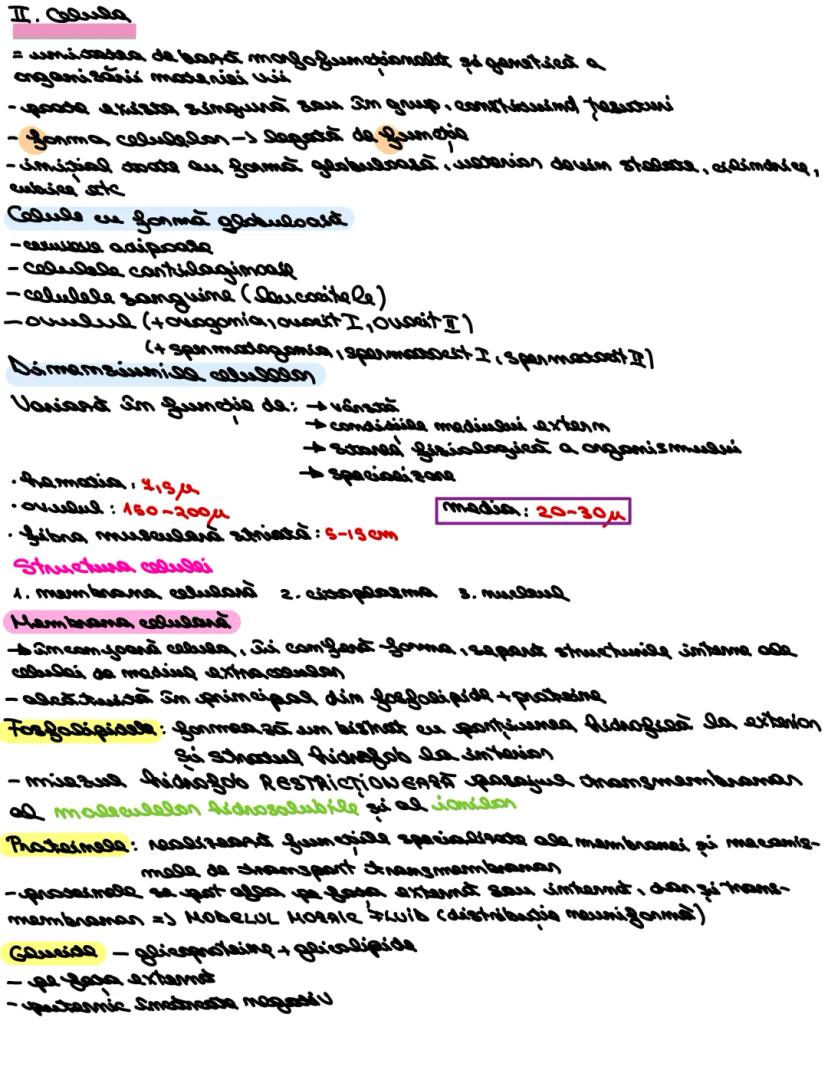 II. Celula
= unitatea de bază morfofuncțională și genetică a
organizării materiei vii
- poate exista singură sau în grup, constituind țesuturi
- forma celulelor -> legată de funcție
- inițial toate au formă globuloasă, ulterior devin stelate, cilindrice,
cubice etc
Celule cu formă globuloasă
- celulele adipoase
- celulele cartilaginoase
- celulele sanguine (leucocitele)
- ovulul (+ ovogonia, ovocit I, ovocit II)
(+ spermatogonia, spermatocit I, spermatocit II)
Dimensiunile celulelor
Variază în funcție de: → vârstă
→ condițiile mediului extern
→ starea fiziologică a organismului
→ specializare
• hematia: 7,5 µ
• ovulul: 150-200µ
media: 20-30µ
• fibra musculară striată: 5-15 cm
Structura celulei
1. membrana celulară 2. citoplasma 3. nucleul
Membrana celulară
→ înconjoară celula, îi conferă forma, separă structurile interne ale
celulei de mediul extracelular
- alcătuită în principal din fosfolipide + proteine
Fosfolipidele: formează un bistrat cu porțiunea hidrofilă la exterior
și stratul hidrofob la interior
- miezul hidrofob RESTRICȚIONEAZĂ pasajul transmembranar
al moleculelor hidrosolubile și al ionilor
Proteinele: realizează funcțiile specializate ale membranei și mecanis-
mele de transport transmembranar
- proteinele se pot afla pe fața externă sau internă, dar și trans-
membranar => MODELUL MOZAIC FLUID (distribuție neuniformă)
Glucide - glicoproteine + glicolipide
- pe fața externă
- puternic încărcate negativ